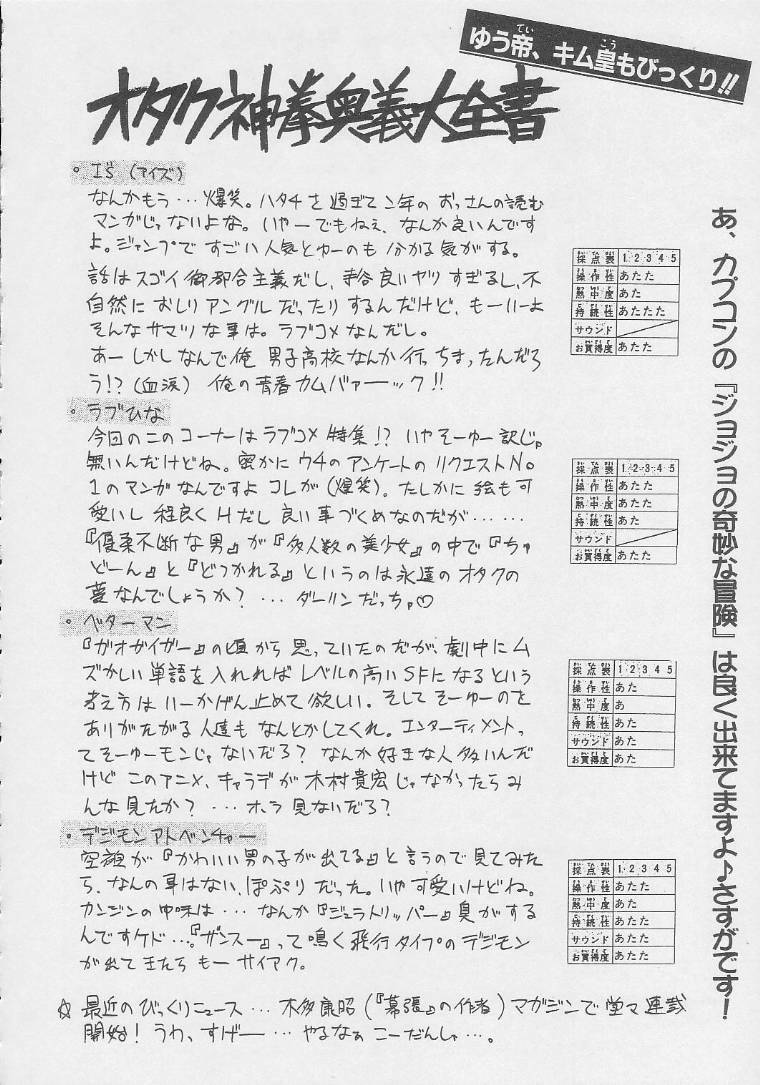 ゆう帝、キム皇もびっくり!!
オタク神拳奥義大全書
・I's (アイズ)
なんかもう…爆笑。ハタチを過ぎて2年のおっさんの読む
マンガじゃないよな。いやーでもねぇ、なんか良いんです
よ。ジャンプですごい人気とゆーのも分かる気がする。
話はスゴイ御都合主義だし、手谷良いヤリすぎるし、不
自然におしりアングルだったりするんだけど、もーいーよ
そんなサマツな事は。ラブコメなんだし。
あーしかしなんで俺 男子高校なんか行っちまったんだろ
う!? (血涙) 俺の青春カムバァーック!!
採点表 1 2 3 4 5
操作性 あたた
熱中度 あた
持続性 あたたた
サウンド
お買得度 あたた
・ラブひな
今回のこのコーナーはラブコメ特集!? いやそーゆー訳じゃ
無いんだけどね。密かにウチのアンケートのリクエストNo
1のマンガなんですよコレが(爆笑)。たしかに絵も可
愛いし程良くHだし良い事づくめなのだが……
『優柔不断な男』が『多人数の美少女』の中で『ちゅ
どーん』と『どつかれる』というのは永遠のオタクの
夢なんでしょうか? …ダーリンだっちゃ♡
採点表 1 2 3 4 5
操作性 あたた
熱中度 あたた
持続性 あた
サウンド
お買得度 あたた
・ベターマン
『ガオガイガー』の頃から思っていたのだが、劇中にム
ズかしい単語を入れればレベルの高いSFになるという
考え方はいーかげん止めて欲しい。そしてそーゆーのを
ありがたがる人達もなんとかしてくれ。エンターティメントっ
てそーゆーモンじゃないだろ? なんか好きな人多いんだ
けどこのアニメ、キャラデが木村貴宏じゃなかったらみ
んな見たか? …ホラ見ないだろ?
採点表 1 2 3 4 5
操作性 あた
熱中度 あ
持続性 あた
サウンド あた
お買得度 あた
・デジモンアドベンチャー
空難が『かわいい男の子が出てる』と言うので見てみた
ら、なんの事はない、ぽぷりだった。いや可愛いけどね。
カンジンの中味は…なんか『ジュラトリッパー』臭がする
んですケド…。『ザンスー』って鳴く飛行タイプのデジモン
が出てきたらもーサイアク。
採点表 1 2 3 4 5
操作性 あたた
熱中度 あた
持続性 あたた
サウンド あたた
お買得度 あたた
☆ 最近のびっくりニュース…木多康昭(『幕張』の作者)マガジンで堂々連載
開始! うわ、すげー…やるなぁこーだんしゃ…。
あ、カプコンの『ジョジョの奇妙な冒険』は良く出来てますよ♪さすがです!